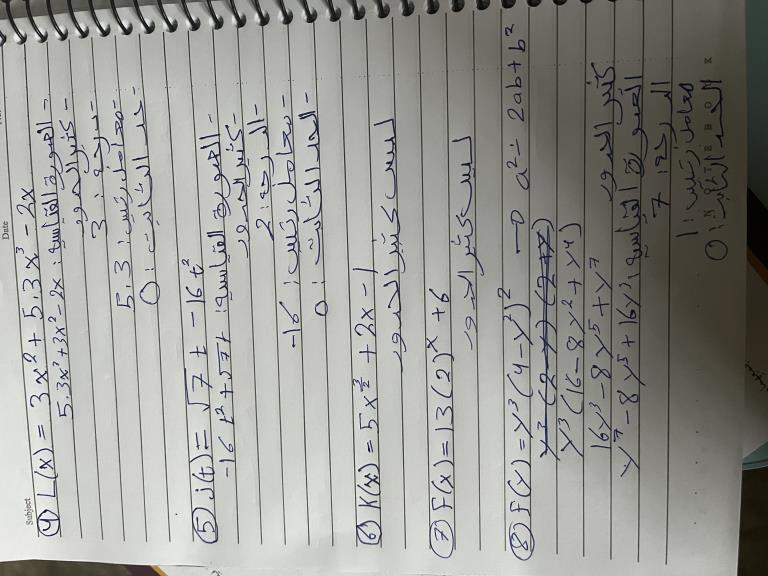 Subject
Date
④ L(x) = 3x² + 5.3x³ - 2x
- الصورة القياسية: 5.3x³+3x²-2x
- كثير الحدود
- درجة: 3
- معامل رئيسي: 5.3
- حد الثابت: 0
⑤ j(t) = √7 t - 16t²
- الصورة القياسية: -16t²+√7t
- كثير الحدود
- الدرجة: 2
- معامل رئيسي: -16
- الحد الثابت: 0
⑥ K(x) = 5x^{3/2} + 2x - 1
ليست كثير الحدود
⑦ F(x) = 13(2)^x + 6
ليست كثير الحدود
⑧ F(y) = y³(4-y²)² → a² - 2ab + b²
y³(16-8y²+y⁴)
16y³-8y⁵+y⁷ كثير الحدود
y⁷-8y⁵+16y³ الصورة القياسية:
الدرجة: 7
معامل رئيسي: 1
الحد الثابت: 0
NOTEBOOK